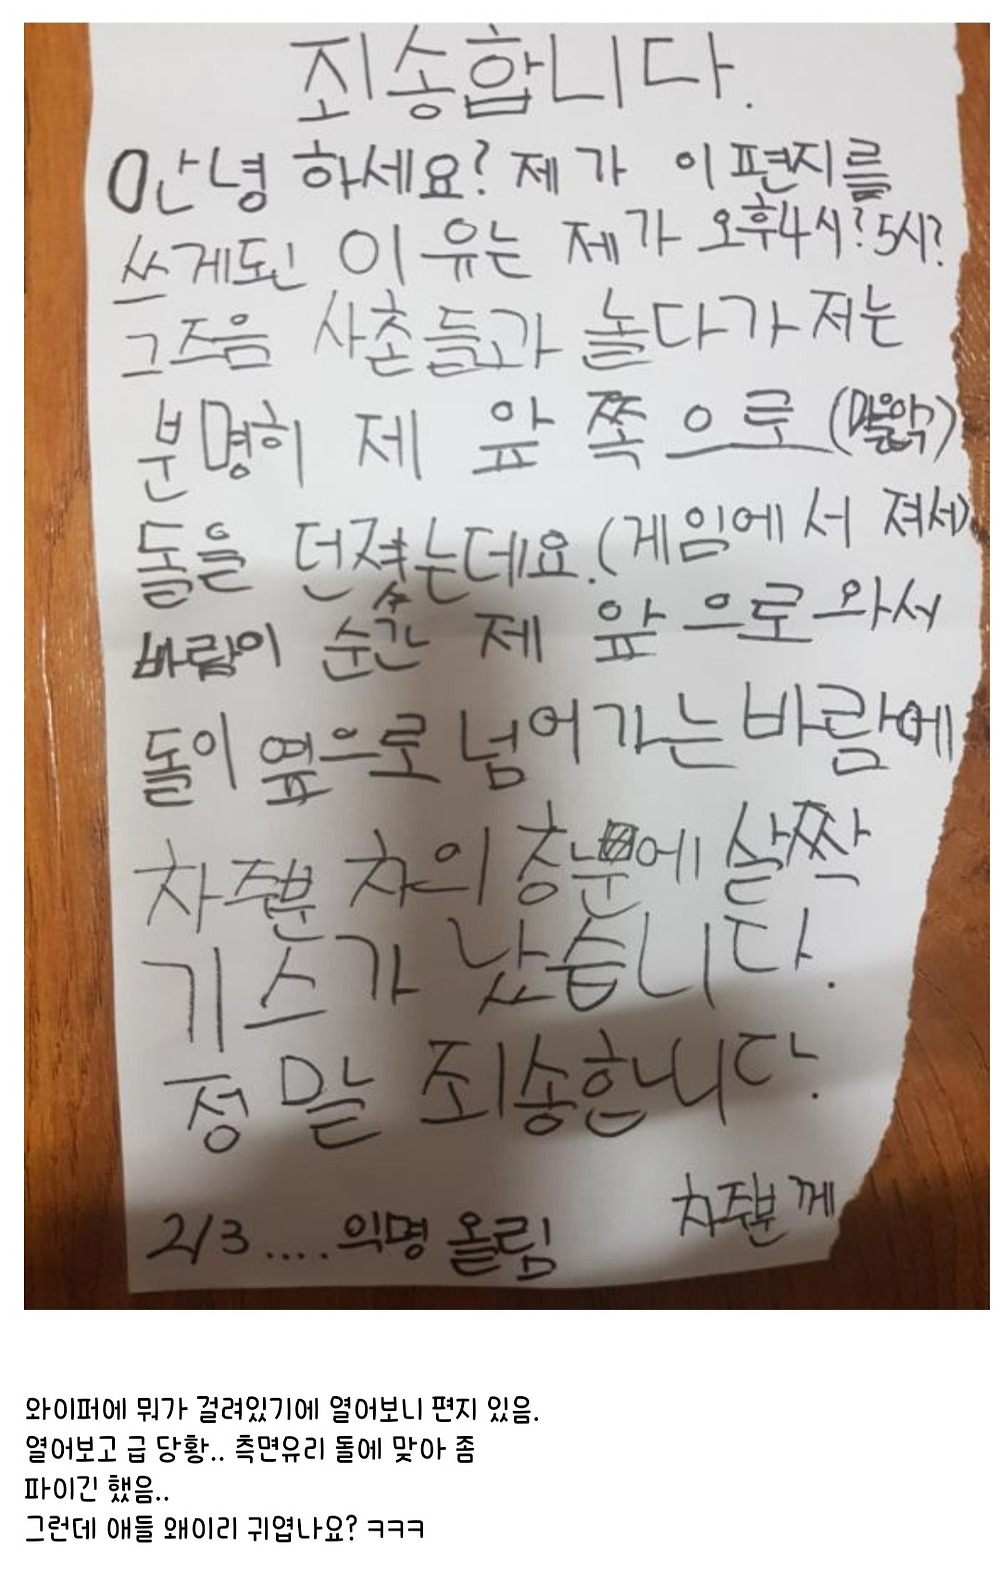 죄송합니다.
안녕하세요? 제가 이 편지를
쓰게된 이유는 제가 오후4시? 5시?
그즈음 사촌들과 놀다가 저는
분명히 제 앞 쪽으로
돌을 던졌는데요.(게임에서 져서)
바람이 순간 제 앞으로 와서
돌이 옆으로 넘어가는 바람에
차주분 차의 창문에 살짝
기스가 났습니다.
정말 죄송한니다.
차주분께
2/3.....익명 올림
와이퍼에 뭐가 걸려있기에 열어보니 편지 있음.
열어보고 급 당황.. 측면유리 돌에 맞아 좀
파이긴 했음..
그런데 애들 왜이리 귀엽나요? ㅋㅋㅋ